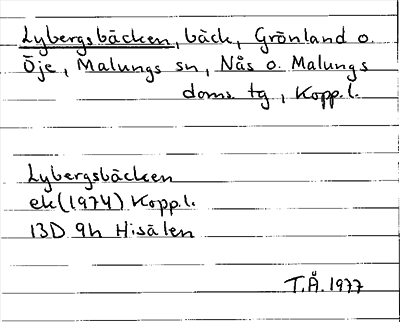 Lybergsbäcken, bäck, Grönland o.
Öje, Malungs sn, Nås o. Malungs
doms. tg, Kopp.l.
Lybergsbäcken
ek (1974) Kopp.l.
13D 9h Hisälen
T.Å. 1977